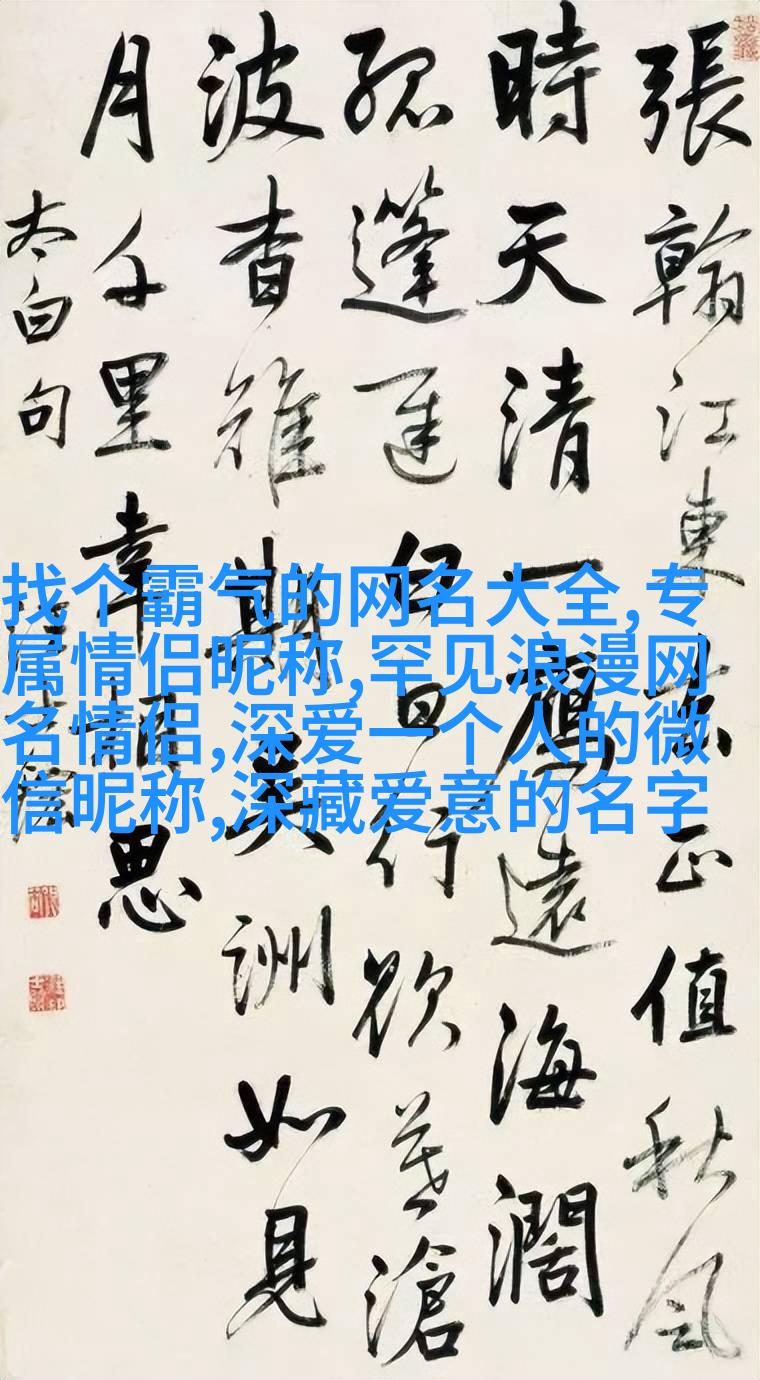 張翰江東去正值秋風
時天清一鴈遠海闊
孤蓬遲日行欲暮滄
波杳難期吳洲如見
月千里幸相思
太白句
找个霸气的网名大全,专
属情侣昵称,罕见浪漫网
名情侣,深爱一个人的微
信昵称,深藏爱意的名字